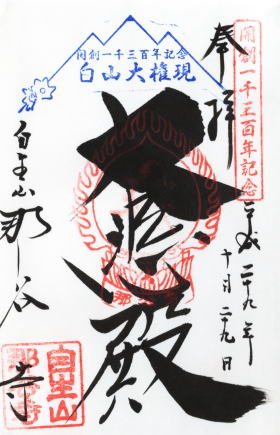 開創一千三百年記念
奉拝
平成二十九年
十月二十九日
開創一千三百年記念
白山大権現
大悲殿
自生山
那谷寺
自生山
那谷寺
那